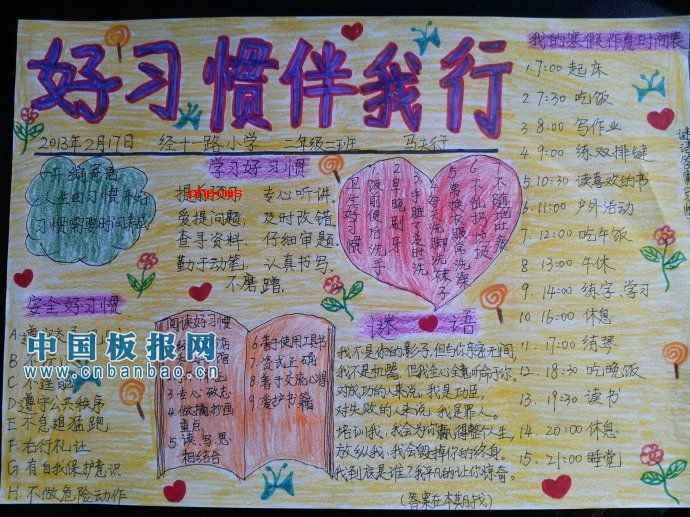 好习惯伴我行
2013年2月17日 经十一路小学 二年级二班 马天行
我的寒假作息时间表
1. 7:00 起床
2. 7:30 吃饭
3. 8:00 写作业
4. 9:00 练双排键
5. 10:30 读喜欢的书
6. 11:00 户外活动
7. 12:00 吃午饭
8. 13:00 午休
9. 14:00 练字、学习
10. 16:00 休息
11. 17:00 练琴
12. 18:30 吃晚饭
13. 19:30 读书
14. 20:00 休息
15. 21:00 睡觉
习惯需要时间
学习好习惯
专心听讲.
爱提问题, 及时改错.
查寻资料. 仔细审题.
勤于动笔, 认真书写.
不磨蹭.
卫生好习惯
1. 饭前便后洗手
2. 早晚刷牙
3. 手脏了及时洗
4. 每天洗脚洗袜子
5. 勤换衣服常洗澡
6. 不乱扔垃圾
7. 不随地吐痰
安全好习惯
D 遵守公共秩序
E 不急追猛跑
F 右行礼让
G 有自我保护意识
H 不做危险动作
阅读好习惯
3 专心致志
4 做摘抄画重点
5 读、写、思相结合
6 善于使用工具书
7 姿式正确
8 善于交流心得
9 爱护书籍
谜语
我不是你的影子,但与你亲密无间,
我不是机器,但我全心全意听命于你.
对成功的人来说,我是功臣,
对失败的人来说,我是罪人.
培训我,我会为你赢得整个人生,
放纵我,我会毁掉你的终身.
我到底是谁?我平凡的让你惊奇.
(答案在本期找)
中国板报网
www.cnbanbao.cn